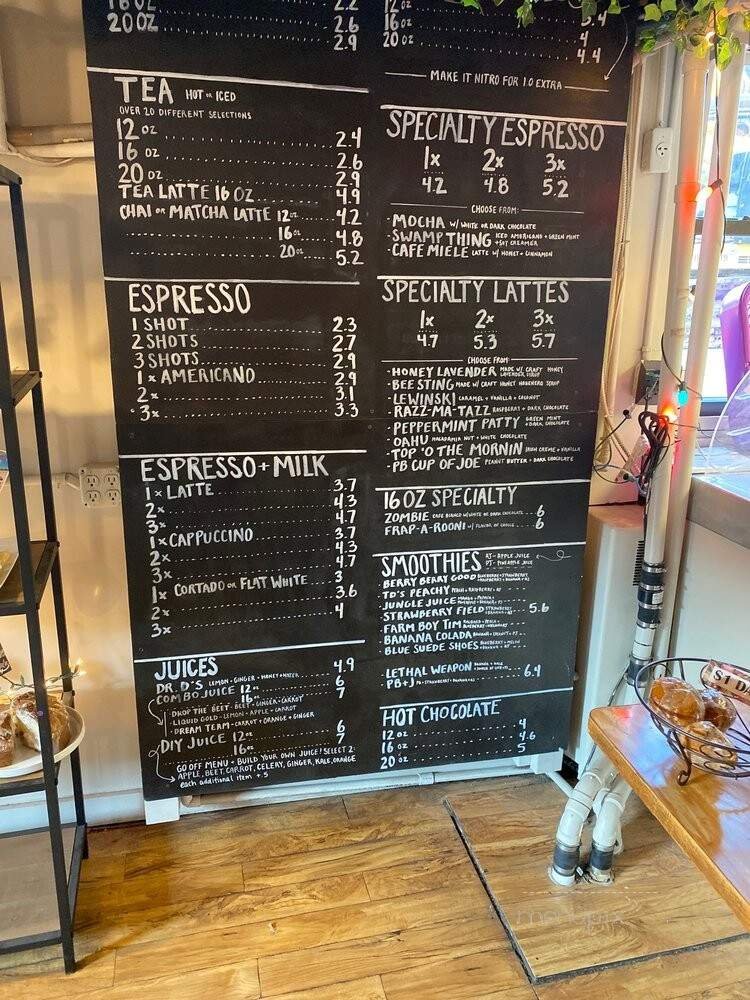 2.2
20 OZ 2.6
2.9
TEA HOT OR ICED
OVER 20 DIFFERENT SELECTIONS
12 OZ 2.4
16 OZ 2.6
20 OZ 2.9
TEA LATTE 16 OZ 4.9
CHAI OR MATCHA LATTE 12 OZ 4.2
16 OZ 4.8
20 OZ 5.2
ESPRESSO
1 SHOT 2.3
2 SHOTS 2.7
3 SHOTS 2.9
1X AMERICANO 2.9
2X 3.1
3X 3.3
ESPRESSO + MILK
1X LATTE 3.7
2X 4.3
3X 4.7
1X CAPPUCCINO 3.7
2X 4.3
3X 4.7
1X CORTADO OR FLAT WHITE 3
2X 3.6
3X 4
JUICES
DR. D'S LEMON - GINGER - HONEY + WATER 4.9
COMBO JUICE 12 OZ 6
16 OZ 7
DROP THE BEET - BEET - GINGER - CARROT
LIQUID GOLD - LEMON - APPLE - CARROT
DREAM TEAM - CARROT + ORANGE + GINGER
DIY JUICE 12 OZ 6
16 OZ 7
GO OFF MENU + BUILD YOUR OWN JUICE! SELECT 2:
APPLE, BEET, CARROT, CELERY, GINGER, KALE, ORANGE
each additional item + .5
12 OZ 3.4
16 OZ 4
20 OZ 4.4
MAKE IT NITRO FOR 1.0 EXTRA
SPECIALTY ESPRESSO
1X 2X 3X
4.2 4.8 5.2
CHOOSE FROM:
- MOCHA W/ WHITE OR DARK CHOCOLATE
- SWAMP THING ICED AMERICANO + GREEN MINT
+ SOY CREAMER
- CAFE MIELE LATTE W/ HONEY + CINNAMON
SPECIALTY LATTES
1X 2X 3X
4.7 5.3 5.7
CHOOSE FROM:
- HONEY LAVENDER MADE W/ CRAFT HONEY
LAVENDER SYRUP
- BEE STING MADE W/ CRAFT HONEY HABENERO SYRUP
- LEWINSKI CARAMEL + VANILLA + COCONUT
- RAZZ-MA-TAZZ RASPBERRY + DARK CHOCOLATE
- PEPPERMINT PATTY GREEN MINT
+ DARK CHOCOLATE
- OAHU MACADAMIA NUT + WHITE CHOCOLATE
- TOP 'O THE MORNIN IRISH CREME + VANILLA
- PB CUP OF JOE PEANUT BUTTER + DARK CHOCOLATE
16 OZ SPECIALTY
ZOMBIE CAFE BIANCO W/ WHITE OR DARK CHOCOLATE 6
FRAP-A-ROONI W/ FLAVOR OF CHOICE 6
SMOOTHIES AJ - APPLE JUICE
PJ - PINEAPPLE JUICE
- BERRY BERRY GOOD BLUEBERRY + STRAWBERRY
+ RASPBERRY + BANANA + AJ
- TD'S PEACHY PEACH + RASPBERRY + AJ
- JUNGLE JUICE
- STRAWBERRY FIELD STRAWBERRY 5.6
+ BANANA + AJ
- FARM BOY TIM
- BANANA COLADA BANANA + COCONUT + PJ
- BLUE SUEDE SHOES BLUEBERRY + MELON
+ BANANA + AJ
- LETHAL WEAPON 6.4
- PB + J PB + STRAWBERRY + BANANA + AJ
HOT CHOCOLATE
12 OZ 4
16 OZ 4.6
20 OZ 5
menupix